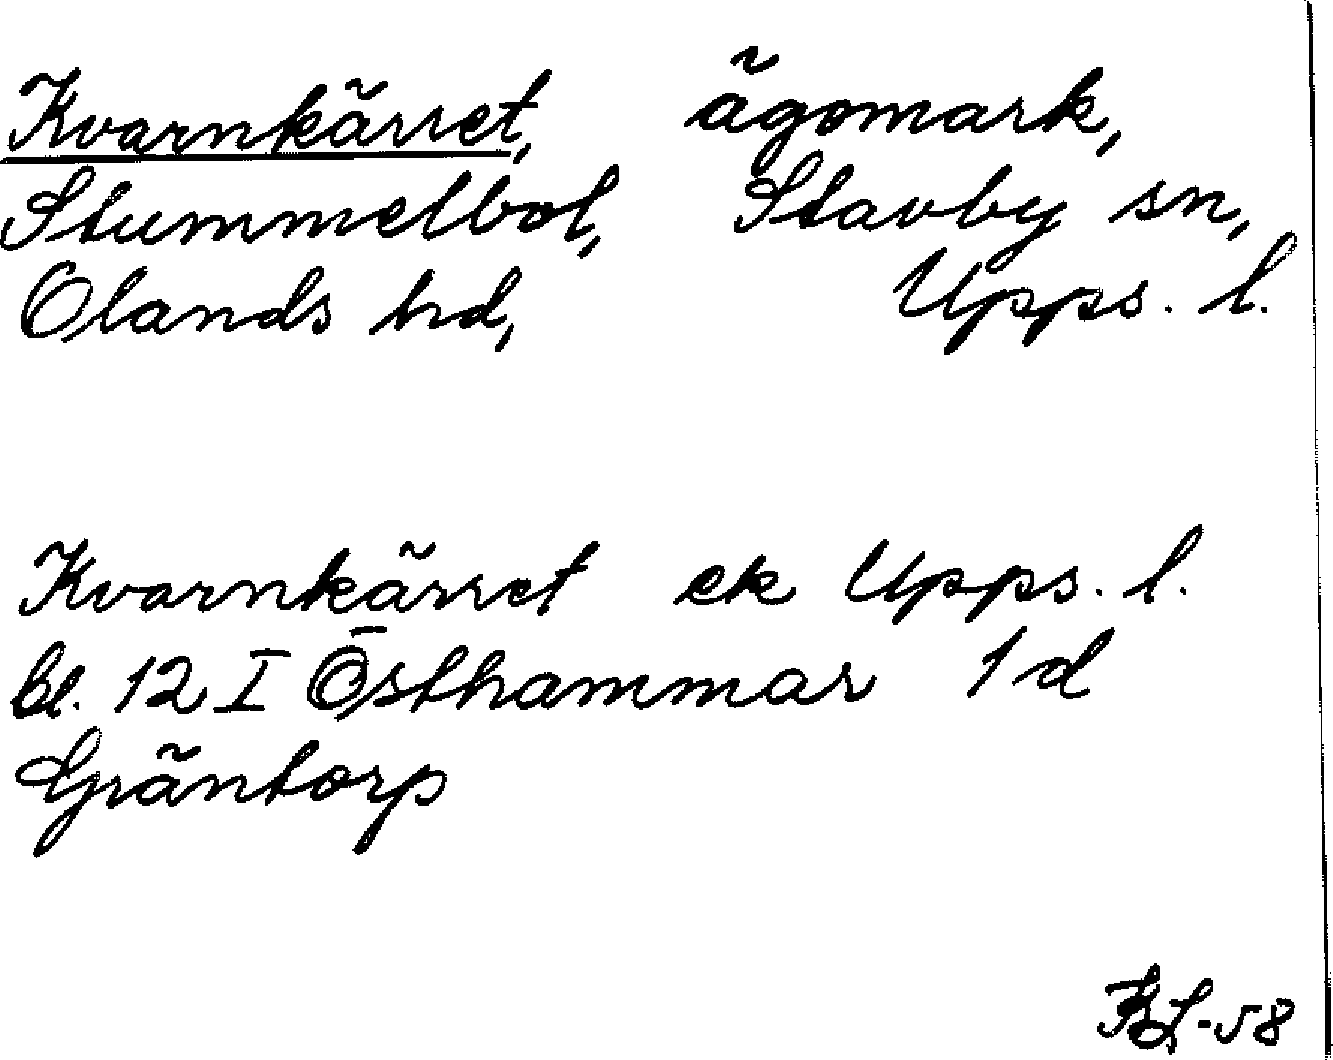 Kvarnkärret, ägomark,
Stummelbol, Stavby sn,
Olands hd, Upps. l.
Kvarnkärret ek Upps. l.
bl. 12 I Östhammar 1 d
Gräntorp
KL-58